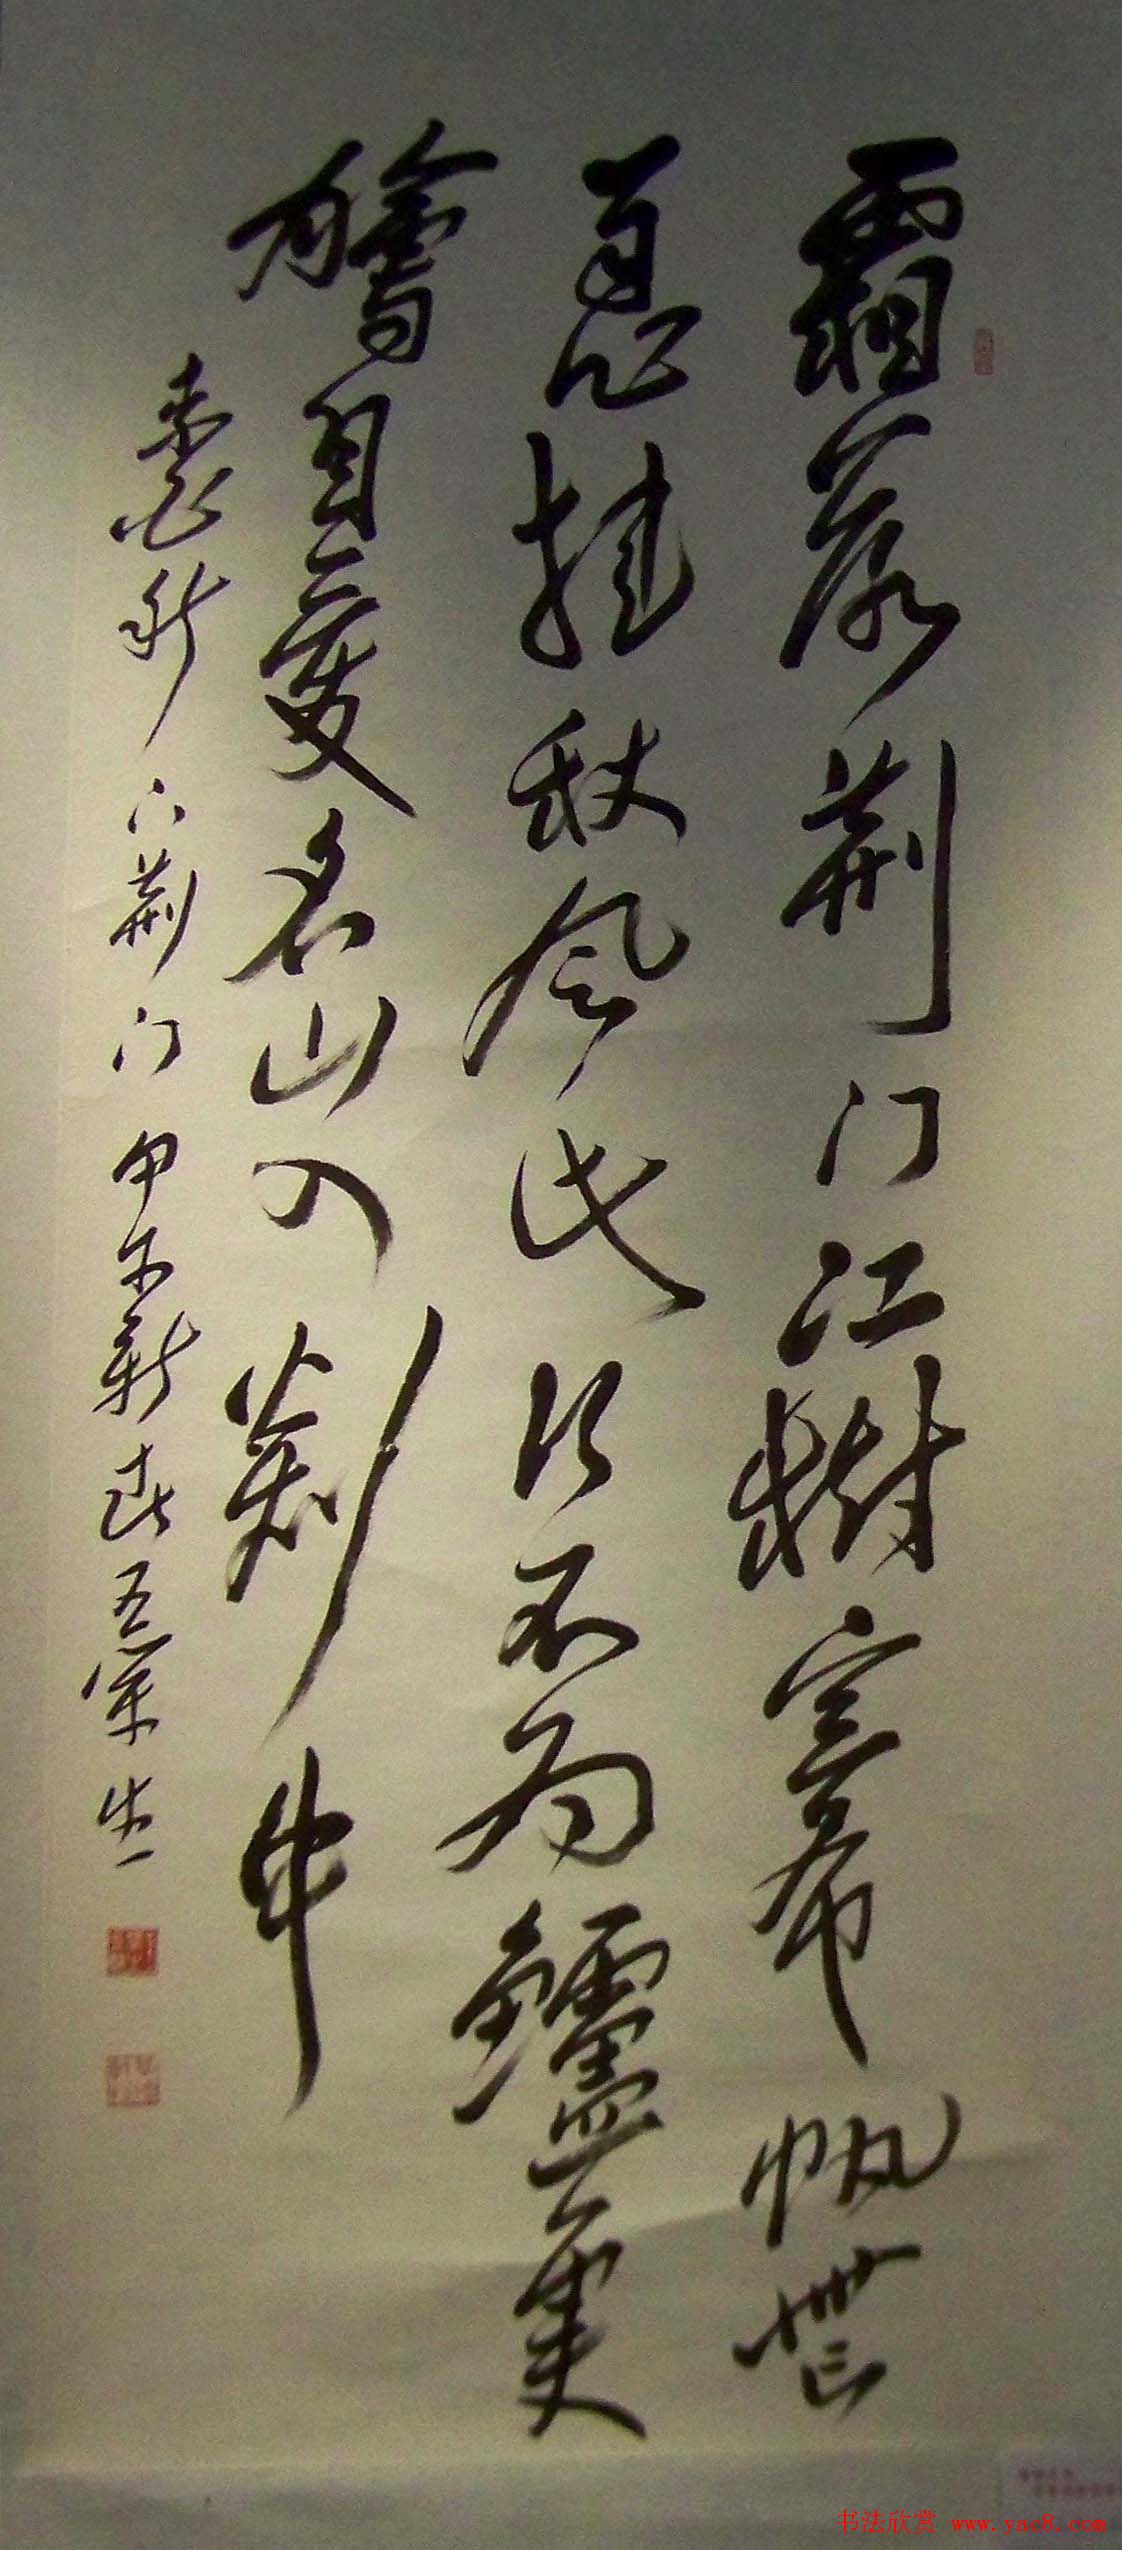 霜落荆门江樹空布帆無
恙挂秋风此行不为鱸魚
鱠自愛名山入剡中
李白秋下荆门 甲午新春
书法欣赏 www.yac8.com